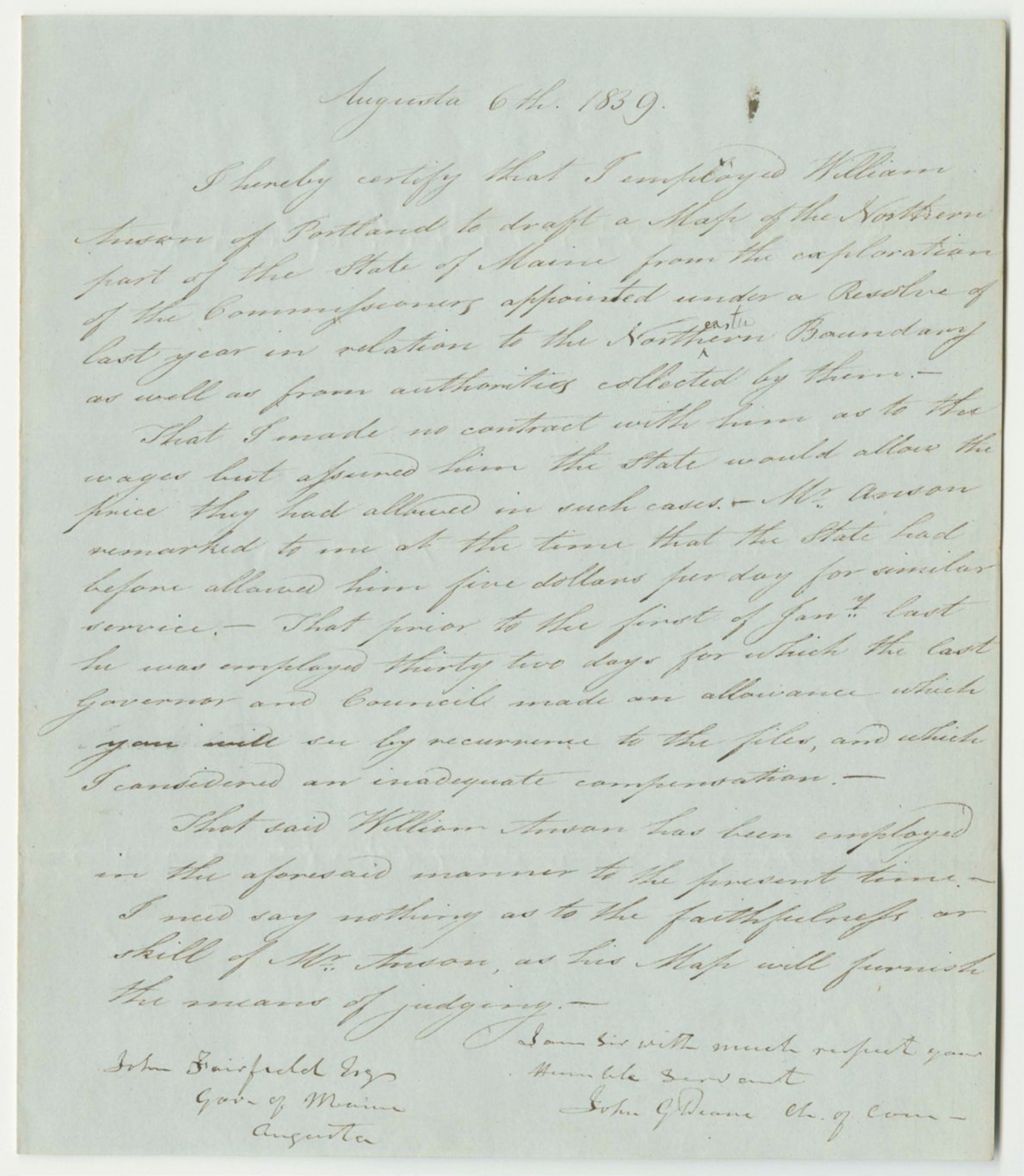 Augusta 6th. 1839.
I hereby certify that I employed William
Anson of Portland to draft a Map of the Northern
part of the State of Maine from the exploration
of the Commissioners appointed under a Resolve of
last year in relation to the Northeastern Boundary
as well as from authorities collected by them.—
That I made no contract with him as to the
wages but assured him the State would allow the
price they had allowed in such cases.— Mr. Anson
remarked to me at the time that the State had
before allowed him five dollars per day for similar
service.— That prior to the first of Jany. last
he was employed thirty two days for which the last
Governor and Council made an allowance which
you will see by recurrence to the files, and which
I considered an inadequate compensation.—
That said William Anson has been employed
in the aforesaid manner to the present time.—
I need say nothing as to the faithfulness or
skill of Mr. Anson, as his Map will furnish
the means of judging.—
I am Sir with much respect your
Humble Servant
John G Deane Ch. of Com—
John Fairfield Esq
Gov. of Maine
Augusta